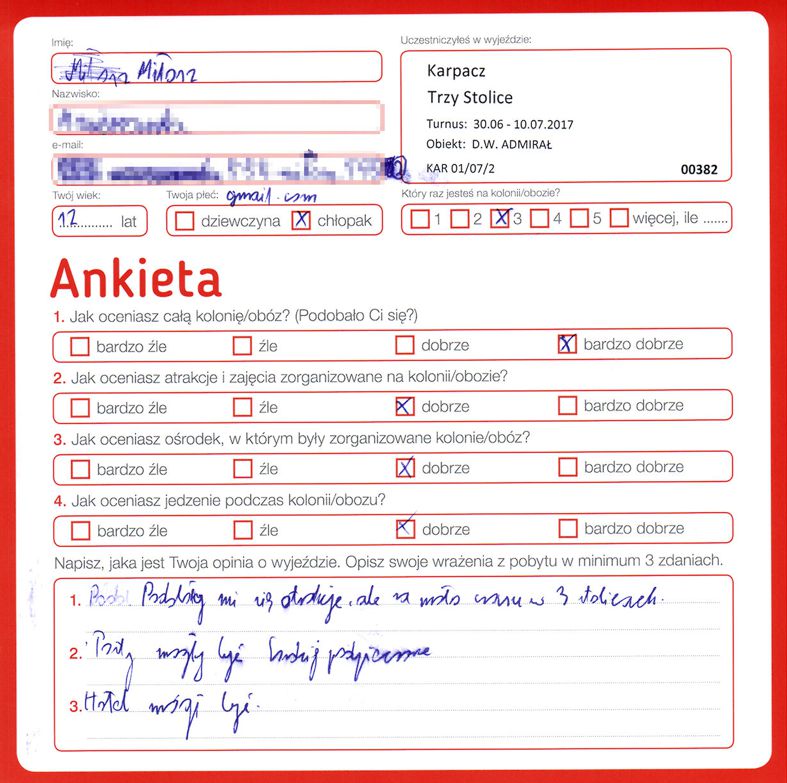 Imię:
Miłosz
Nazwisko:
e-mail:
gmail.com
Twój wiek:
12 lat
Twoja płeć:
dziewczyna X chłopak
Uczestniczyłeś w wyjeździe:
Karpacz
Trzy Stolice
Turnus: 30.06 - 10.07.2017
Obiekt: D.W. ADMIRAŁ
KAR 01/07/2 00382
Który raz jesteś na kolonii/obozie?
1 2 X 3 4 5 więcej, ile .......
Ankieta
1. Jak oceniasz całą kolonię/obóz? (Podobało Ci się?)
bardzo źle źle dobrze X bardzo dobrze
2. Jak oceniasz atrakcje i zajęcia zorganizowane na kolonii/obozie?
bardzo źle źle X dobrze bardzo dobrze
3. Jak oceniasz ośrodek, w którym były zorganizowane kolonie/obóz?
bardzo źle źle X dobrze bardzo dobrze
4. Jak oceniasz jedzenie podczas kolonii/obozu?
bardzo źle źle X dobrze bardzo dobrze
Napisz, jaka jest Twoja opinia o wyjeździe. Opisz swoje wrażenia z pobytu w minimum 3 zdaniach.
1. mi się atrakcje, ale za mało czasu w 3 stolicach.
2. być
3. Hotel być.